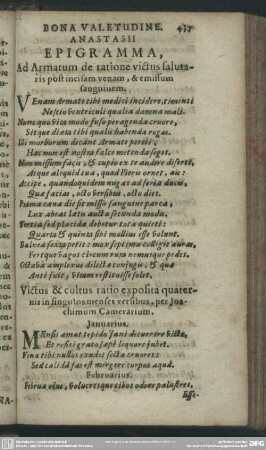 BONA VALETUDINE. 437
ANASTASII
EPIGRAMMA,
Ad Armatum de ratione victus saluta-
ris post incisam venam, & emissum
sanguinem.
VEnam Armate tibi medici incidere, timenti
Nescio ventriculi qualia damna mali.
Nunc qua vita modo fuso peragenda cruore,
Sit que diæta tibi qualis habenda rogas.
Hæc non est nostra falce metenda seges.
Atque aliquid tua, quod Pieris ornet, ait:
Accipe, quandoquidem nugas ad seria ducis,
Qua facias, octo versibus, octo dies.
Prima cœna die sit misso sanguine parca,
Lux abeat lætu aucta secunda modis.
Tertia sed placida debetur tota quieti:
Quarta & quinta sibi mollius esse volunt.
Balnea sexta petit: mox septima colligit auras,
Fertque vagos circum rura nemusque pedes.
Octava amplexus dilectæ conjugis, & qua
Ante fuit, vitam restituisse solet.
Victus & cultus ratio exposita quater-
nis in singulos menses versibus, per Joa-
chimum Camerarium.
Januarius.
MEnsis amat tepido Jani
Et refici grato sæpe liquore jubet.
Vina tibi nullos exudit secta cruores:
Sed calida fas est mergere corpus aqua.
Februarius.
Februa olus, volucresque cibos odere palustres,
Esse-